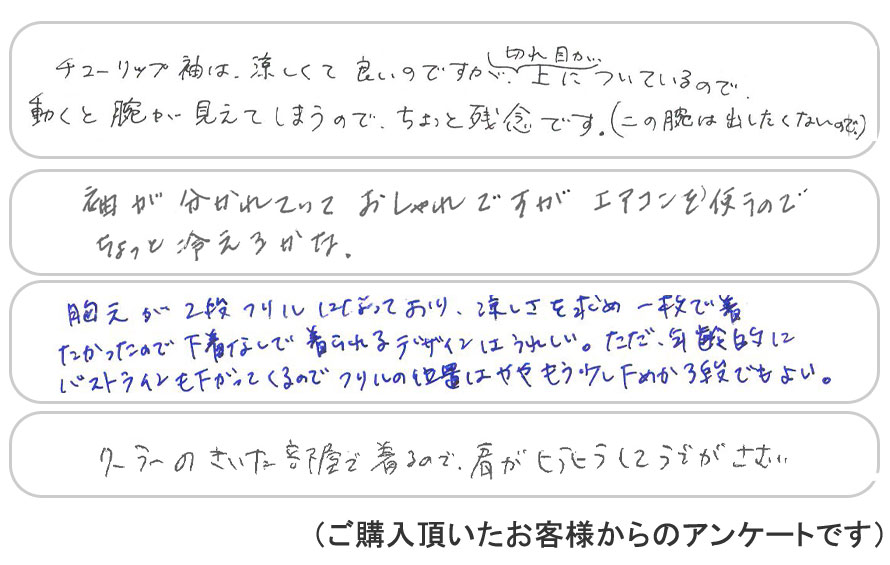 チューリップ袖は、涼しくて良いのですが、切れ目が上についているので、
動くと腕が見えてしまうので、ちょっと残念です。(二の腕は出したくないので。)
袖が分かれていておしゃれですがエアコンを使うので
ちょっと冷えるかな。
胸元が2段フリルになっており、涼しさを求め一枚で着
たかったので下着なしで着られるデザインはうれしい。ただ、年齢的に
バストラインも下がってくるのでフリルの位置はややもう少し下めか3段でもよい。
クーラーのきいた部屋で着るので、肩がヒラヒラしてうでがさむい
(ご購入頂いたお客様からのアンケートです)